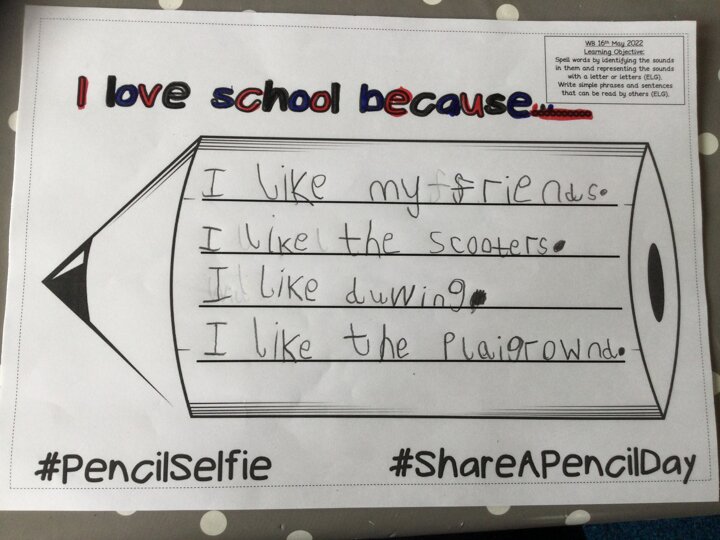 WB 16th May 2022
Learning Objective:
Spell words by identifying the sounds
in them and representing the sounds
with a letter or letters (ELG).
Write simple phrases and sentences
that can be read by others (ELG).
I love school because...........
I like my friends.
I like the scooters.
I like duwing.
I like the plaigrownd.
#PencilSelfie
#ShareAPencilDay